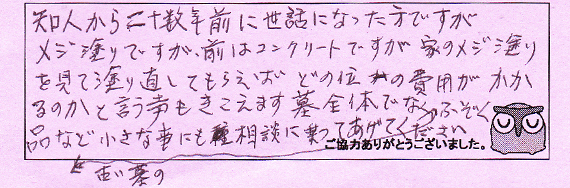 知人から二十数年前に世話になった方ですが
メジ塗りですが、前はコンクリートですが家のメジ塗り
を見て塗り直してもらえばどの位の費用がかか
るのかと言う事もきこえます墓全体でなくふぞく
品など小さな事にも相談に乗ってあげてください
ご協力ありがとうございました。
古い墓の